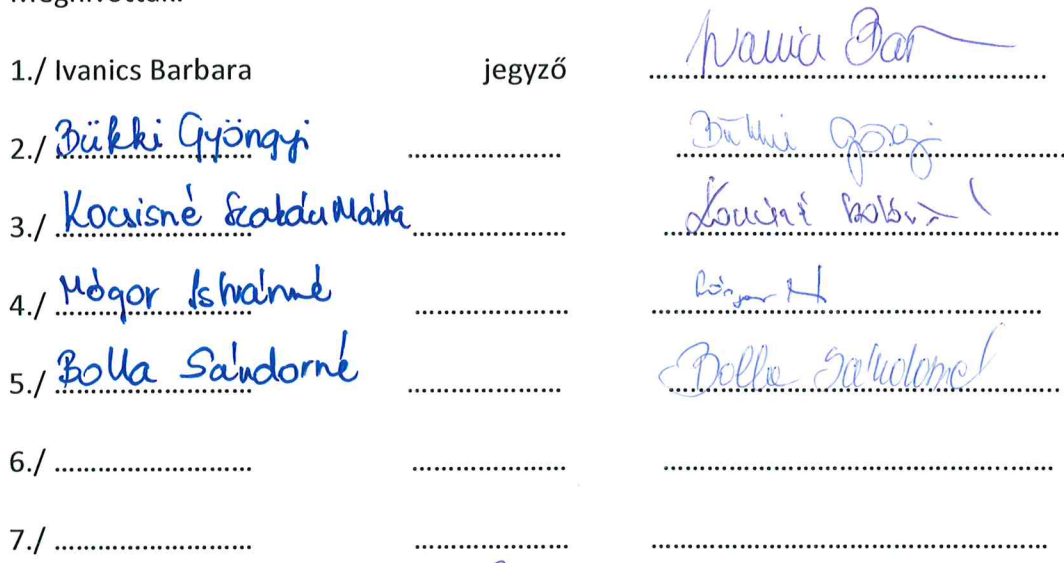 Meghívottak:
1./ Ivanics Barbara jegyző ........................ Ivanics Bar
2./ Bükki Gyöngyi ........................ Bükki Gyöngyi
3./ Kocsisné Szabadu Márta ........................
4./ Mógor Istvánné ........................
5./ Bolla Sándorné ........................ Bolla Sándorné
6./ ........................ ........................ ........................
7./ ........................ ........................ ........................